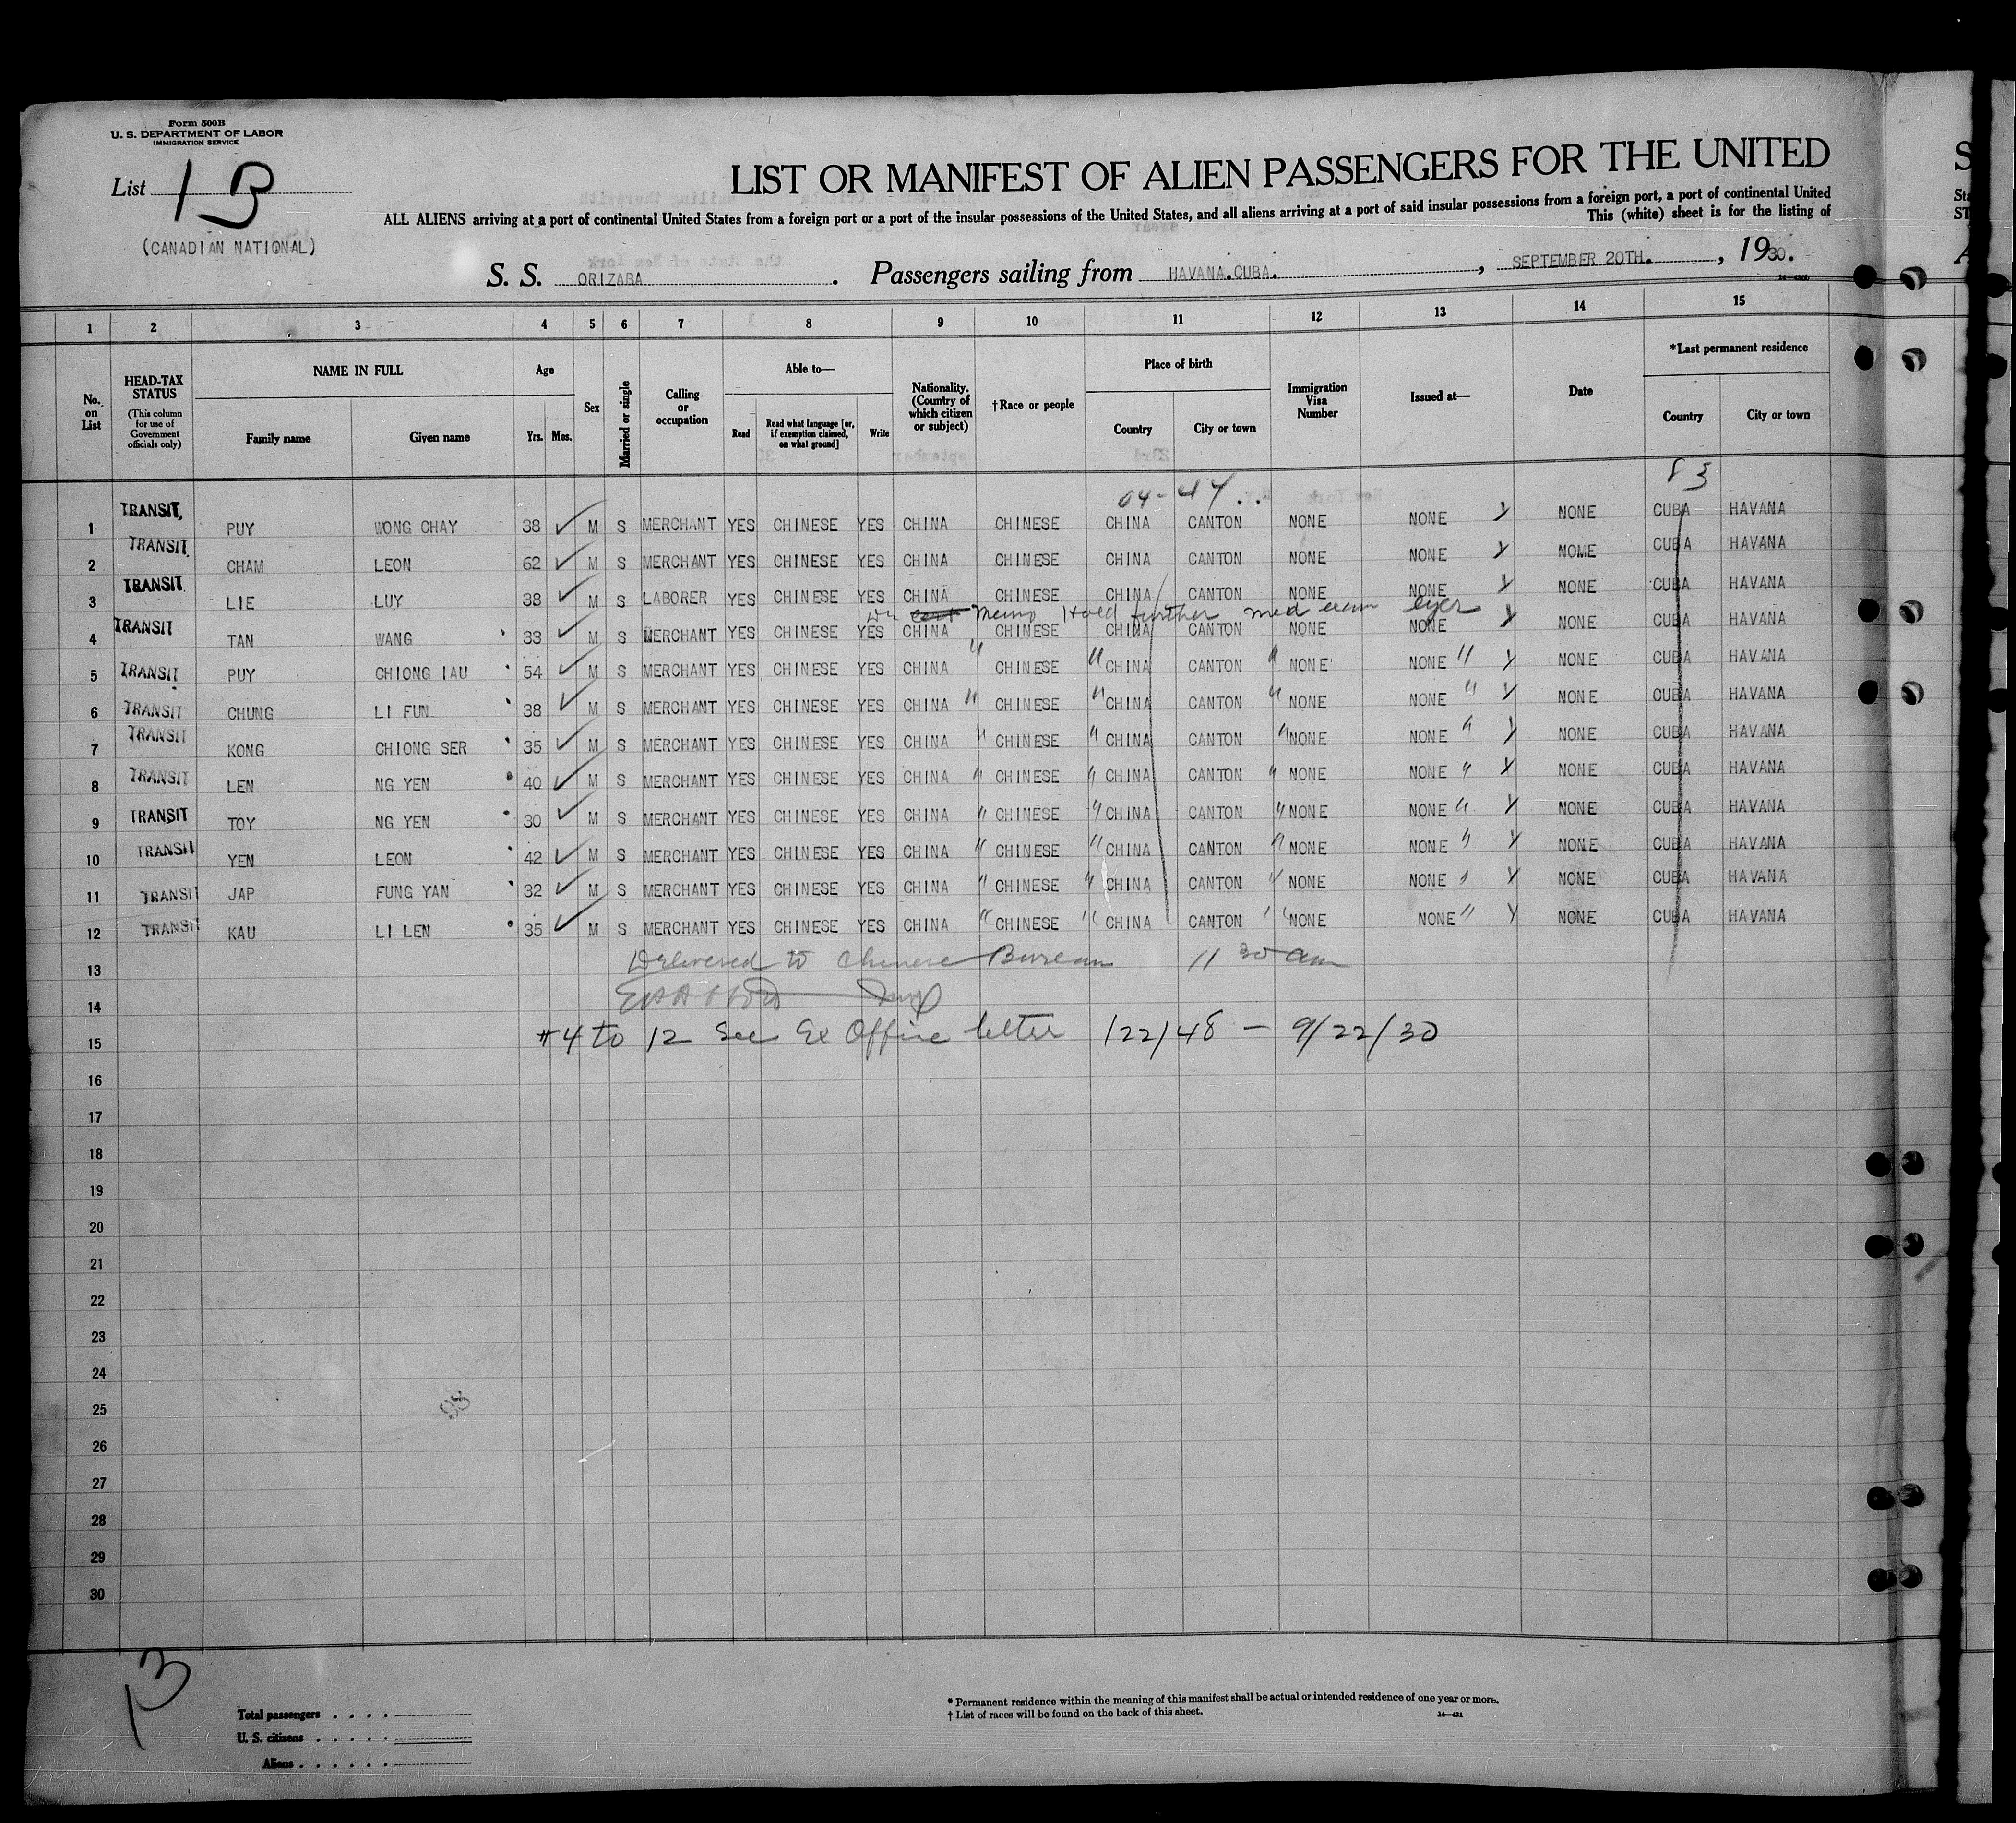 Form 500B
U. S. DEPARTMENT OF LABOR
IMMIGRATION SERVICE
List 1 B
(CANADIAN NATIONAL)
LIST OR MANIFEST OF ALIEN PASSENGERS FOR THE UNITED
ALL ALIENS arriving at a port of continental United States from a foreign port or a port of the insular possessions of the United States, and all aliens arriving at a port of said insular possessions from a foreign port, a port of continental United
This (white) sheet is for the listing of
S. S. ORIZABA. Passengers sailing from HAVANA.CUBA. , SEPTEMBER 20TH. , 1930.
1 2 3 4 5 6 7 8 9 10 11 12 13 14 15
No. on List
HEAD-TAX STATUS (This column for use of Government officials only)
NAME IN FULL Family name Given name
Age Yrs. Mos.
Sex
Married or single
Calling or occupation
Able to— Read Read what language [or, if exemption claimed, on what ground] Write
Nationality. (Country of which citizen or subject)
†Race or people
Place of birth Country City or town
Immigration Visa Number
Issued at—
Date
*Last permanent residence Country City or town
04-44 83
1 TRANSIT, PUY WONG CHAY 38 ✓ M S MERCHANT YES CHINESE YES CHINA CHINESE CHINA CANTON NONE NONE NONE CUBA HAVANA
2 TRANSIT CHAM LEON 62 ✓ M S MERCHANT YES CHINESE YES CHINA CHINESE CHINA CANTON NONE NONE NOME CUBA HAVANA
3 TRANSIT LIE LUY 38 ✓ M S LABORER YES CHINESE YES CHINA CHINESE CHINA CANTON NONE NONE NONE CUBA HAVANA
Hold further med exam eyes
4 TRANSIT TAN WANG 33 ✓ M S MERCHANT YES CHINESE YES CHINA CHINESE CHINA CANTON NONE NONE NONE CUBA HAVANA
5 TRANSIT PUY CHIONG IAU 54 ✓ M S MERCHANT YES CHINESE YES CHINA " CHINESE " CHINA CANTON " NONE NONE " NONE CUBA HAVANA
6 TRANSIT CHUNG LI FUN 38 ✓ M S MERCHANT YES CHINESE YES CHINA " CHINESE " CHINA CANTON " NONE NONE " NONE CUBA HAVANA
7 TRANSIT KONG CHIONG SER 35 ✓ M S MERCHANT YES CHINESE YES CHINA " CHINESE " CHINA CANTON " NONE NONE " NONE CUBA HAVANA
8 TRANSIT LEN NG YEN 40 ✓ M S MERCHANT YES CHINESE YES CHINA " CHINESE " CHINA CANTON " NONE NONE " NONE CUBA HAVANA
9 TRANSIT TOY NG YEN 30 ✓ M S MERCHANT YES CHINESE YES CHINA " CHINESE " CHINA CANTON " NONE NONE " NONE CUBA HAVANA
10 TRANSIT YEN LEON 42 ✓ M S MERCHANT YES CHINESE YES CHINA " CHINESE " CHINA CANTON " NONE NONE " NONE CUBA HAVANA
11 TRANSIT JAP FUNG YAN 32 ✓ M S MERCHANT YES CHINESE YES CHINA " CHINESE " CHINA CANTON " NONE NONE " NONE CUBA HAVANA
12 TRANSIT KAU LI LEN 35 ✓ M S MERCHANT YES CHINESE YES CHINA " CHINESE " CHINA CANTON " NONE NONE " NONE CUBA HAVANA
13 Delivered to Chinese Bureau 11 30 am
14
15 #4 to 12 See Ex Office letter 122/48 - 9/22/30
16
17
18
19
20
21
22
23
24
25
26
27
28
29
30
13
Total passengers
U. S. citizens
Aliens
* Permanent residence within the meaning of this manifest shall be actual or intended residence of one year or more.
† List of races will be found on the back of this sheet.